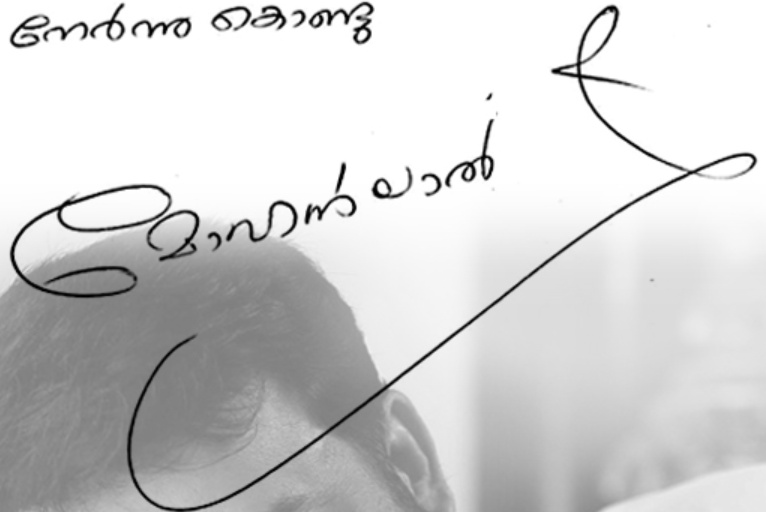 നേർന്നു കൊണ്ടു
മോഹൻലാൽ